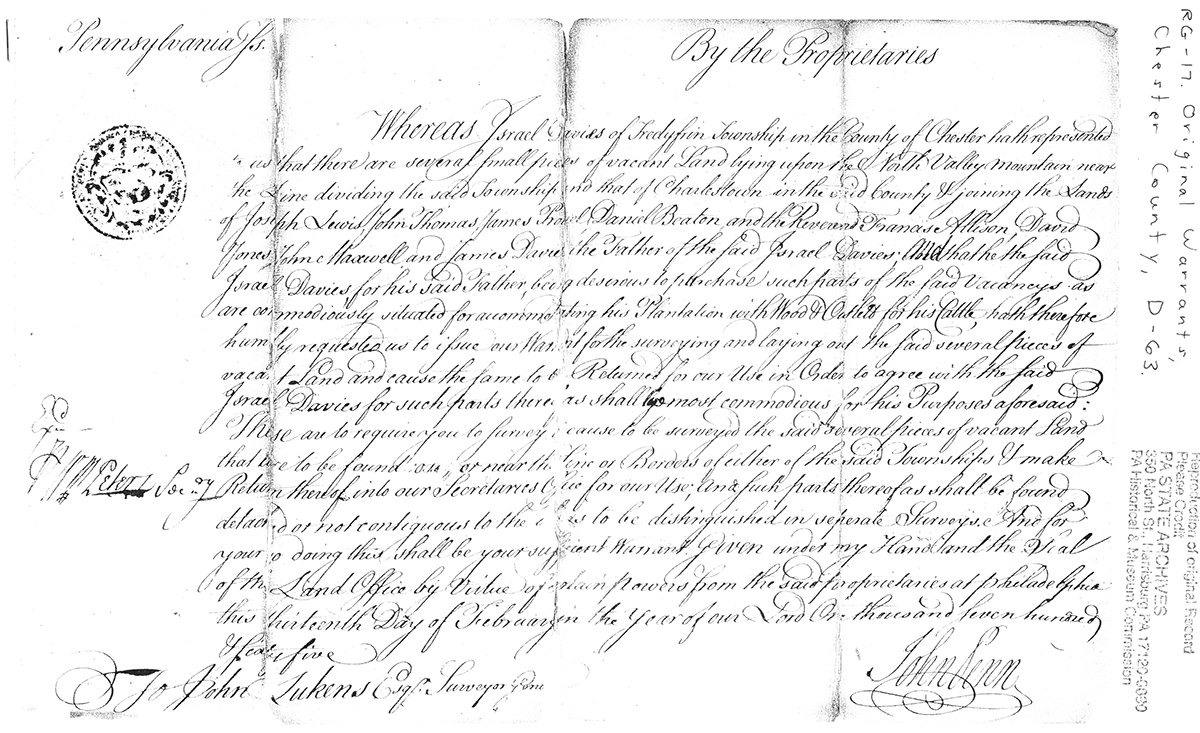 Pennsylvania Ss.
By the Proprietaries
Whereas Israel Davies of Tredyfrin Township in the County of Chester hath represented
to us that there are several small pieces of vacant Land lying upon the North Valley mountain near
the Line dividing the said Township and that of Charlestown in the said County & joining the Lands
of Joseph Lewis, John Thomas, James Powel Daniel Beaton and the Reverend Francis Allison David
Jones, John Maxwell and James Davies the Father of the said Israel Davies; And that he the said
Israel Davies, for his said Father, being desirous to purchase such parts of the said Vacancys as
are commodiously situated for accommodating his Plantation with Wood & Outlett for his Cattle, hath therefore
humbly requested us to issue our Warrant for the surveying and laying out the said several pieces of
vacant Land and cause the same to be Returned for our Use in Order to agree with the said
Israel Davies for such parts thereof as shall be most commodious for his Purposes aforesaid:
These are to require you to survey or cause to be surveyed the said several pieces of vacant Land
that are to be found on, or near the Line or Borders of either of the said Townships & make
Return thereof into our Secretaries Office for our Use, And such parts thereof as shall be found
detached or not contiguous to the to be distinguished in seperate Surveys. And for
your so doing this shall be your sufficient Warrant. Given under my Hand and the Seal
of the Land Office by Virtue of certain Powers from the said Proprietaries at Philadelphia
this thirteenth Day of February in the Year of our Lord One thousand seven hundred
& sixty five
John Penn
To John Lukens Esqr. Surveyor Genl.
Peters Secry
RG-17. Original Warrants,
Chester County, D-63.
Reproduction of original Record
Please Credit
PA STATE ARCHIVES
350 North St., Harrisburg, PA 17120-0090
PA Historical & Museum Commission